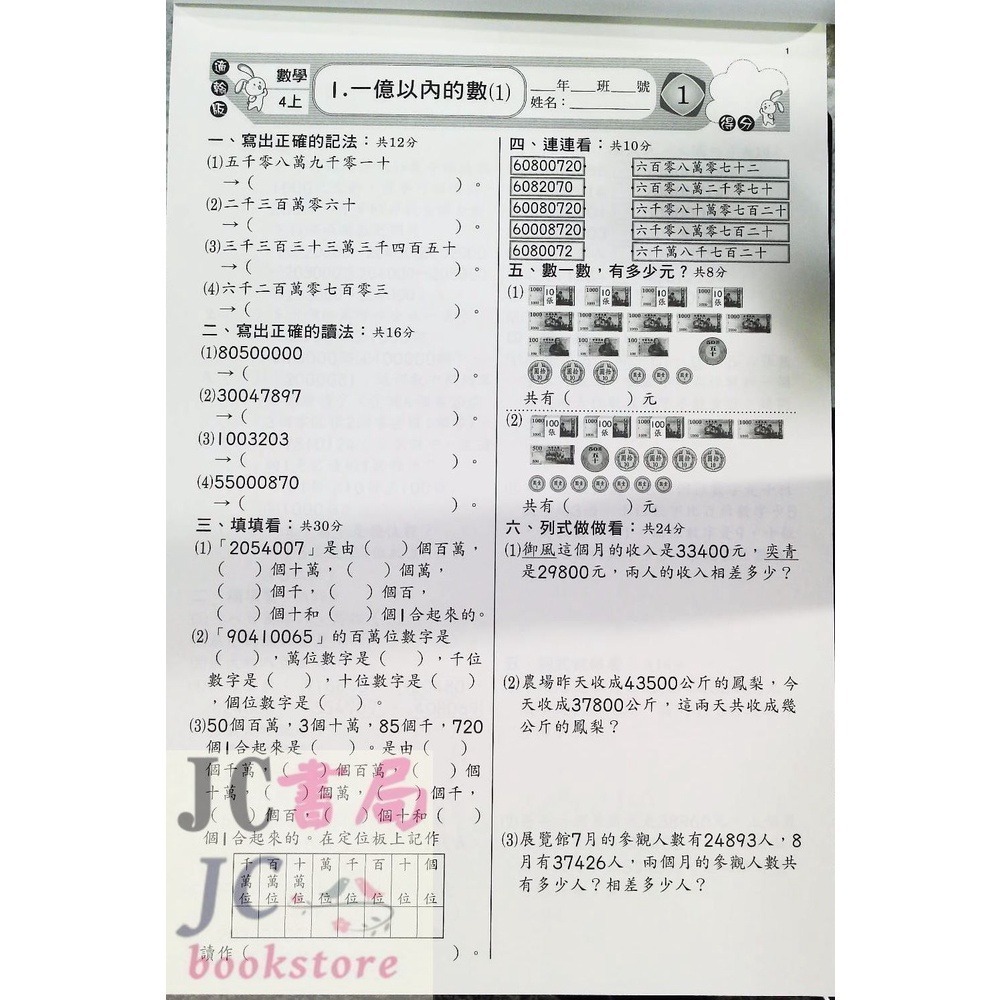 1
適 翰 版
數學
4上
1.一億以內的數(1)
___年___班___號
姓名：________
1
得分
一、寫出正確的記法：共12分
(1)五千零八萬九千零一十
→（ ）。
(2)二千三百萬零六十
→（ ）。
(3)三千三百三十三萬三千四百五十
→（ ）。
(4)六千二百萬零七百零三
→（ ）。
二、寫出正確的讀法：共16分
(1)80500000
→（ ）。
(2)30047897
→（ ）。
(3)1003203
→（ ）。
(4)55000870
→（ ）。
三、填填看：共30分
(1)「2054007」是由（ ）個百萬，
（ ）個十萬，（ ）個萬，
（ ）個千，（ ）個百，
（ ）個十和（ ）個1合起來的。
(2)「90410065」的百萬位數字是
（ ），萬位數字是（ ），千位
數字是（ ），十位數字是（ ）
，個位數字是（ ）。
(3)50個百萬，3個十萬，85個千，720
個1合起來是（ ）。是由（ ）
個千萬，（ ）個百萬，（ ）個
十萬，（ ）個萬，（ ）個千，
（ ）個百，（ ）個十和（ ）
個1合起來的。在定位板上記作
千 百 十 萬 千 百 十 個
萬 萬 萬
位 位 位 位 位 位 位 位
讀作（ ）。
四、連連看：共10分
60800720 六百零八萬零七十二
6082070 六百零八萬二千零七十
60080720 六千零八十萬零七百二十
60008720 六千零八萬零七百二十
6080072 六千萬八千七百二十
五、數一數，有多少元？共8分
(1) 1000 10張 1000 10張 1000 10張 1000 10張
1000 1000 1000 1000 1000
100 100 100 50 五十
拾圓 10 拾圓 10 拾圓 10 壹圓 壹圓 壹圓
共有（ ）元
(2) 1000 100張 1000 100張 1000 100張 1000 1000
500 50 五十 拾圓 10 拾圓 10 拾圓 10 拾圓 10
壹圓 壹圓 壹圓 壹圓 壹圓 壹圓 壹圓
共有（ ）元
六、列式做做看：共24分
(1)御風這個月的收入是33400元，奕青
是29800元，兩人的收入相差多少？
(2)農場昨天收成43500公斤的鳳梨，今
天收成37800公斤，這兩天共收成幾
公斤的鳳梨？
(3)展覽館7月的參觀人數有24893人，8
月有37426人，兩個月的參觀人數共
有多少人？相差多少人？
JC書局
JC
bookstore